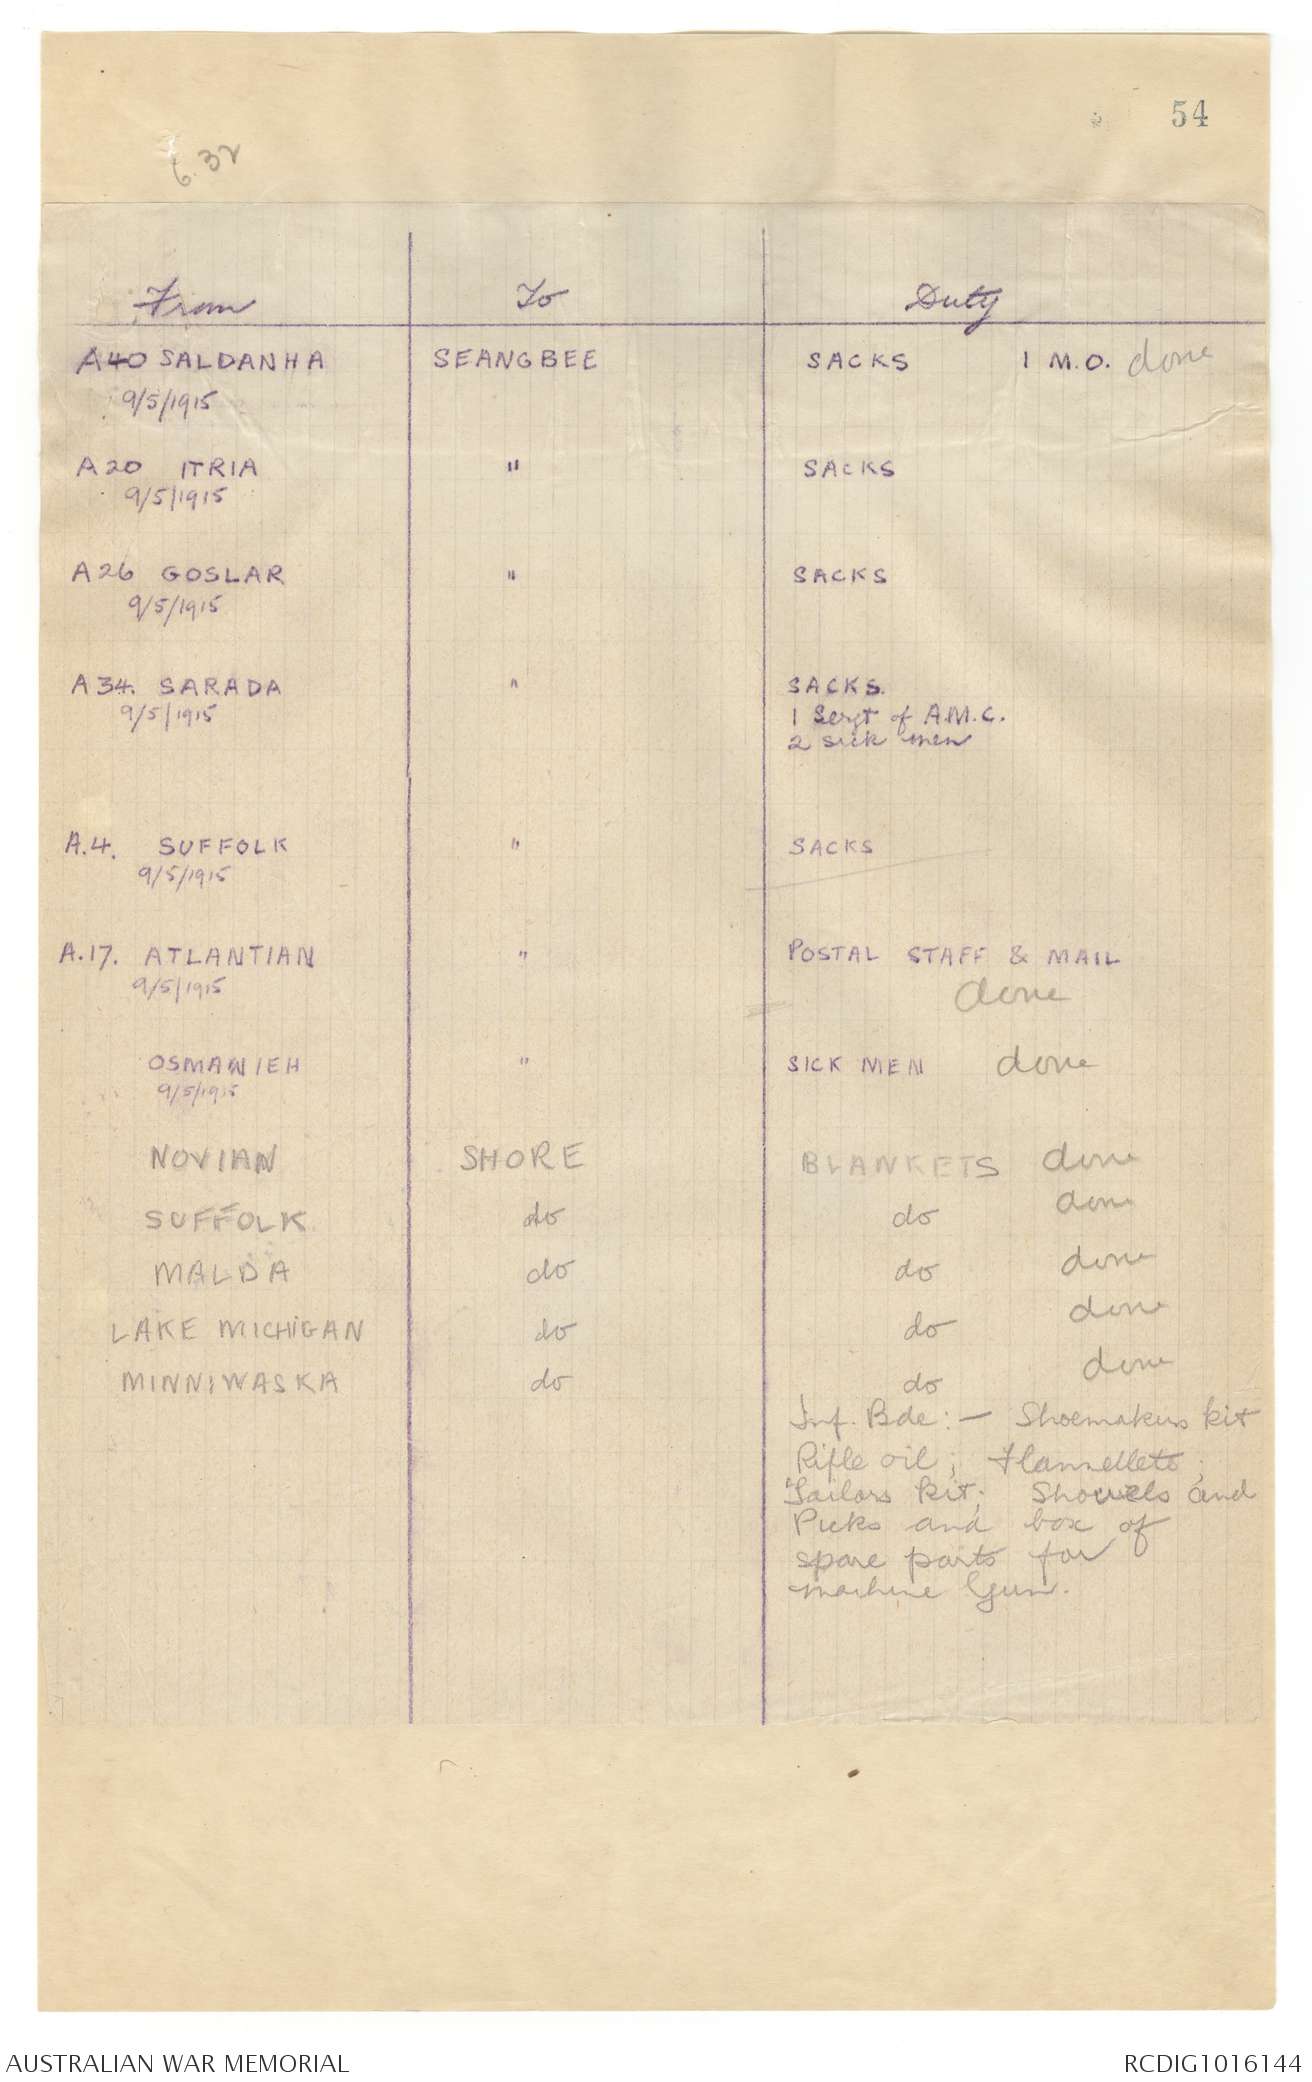 54
6.32
From To Duty
A40 SALDANHA SEANGBEE SACKS 1 M.O. done
9/5/1915
A20 ITRIA " SACKS
9/5/1915
A26 GOSLAR " SACKS
9/5/1915
A34. SARADA " SACKS.
9/5/1915 1 Sergt of A.M.C.
2 sick men
A.4. SUFFOLK " SACKS
9/5/1915
A.17. ATLANTIAN " POSTAL STAFF & MAIL
9/5/1915 done
OSMANIEH " SICK MEN done
9/5/1915
NOVIAN SHORE BLANKETS done
SUFFOLK do do done
MALDA do do done
LAKE MICHIGAN do do done
MINNIWASKA do do done
Inf. Bde:- Shoemakers kit
Rifle oil; Flannellets;
Tailors kit; Shovels and
Picks and box of
spare parts for
machine Gun.
AUSTRALIAN WAR MEMORIAL RCDIG1016144